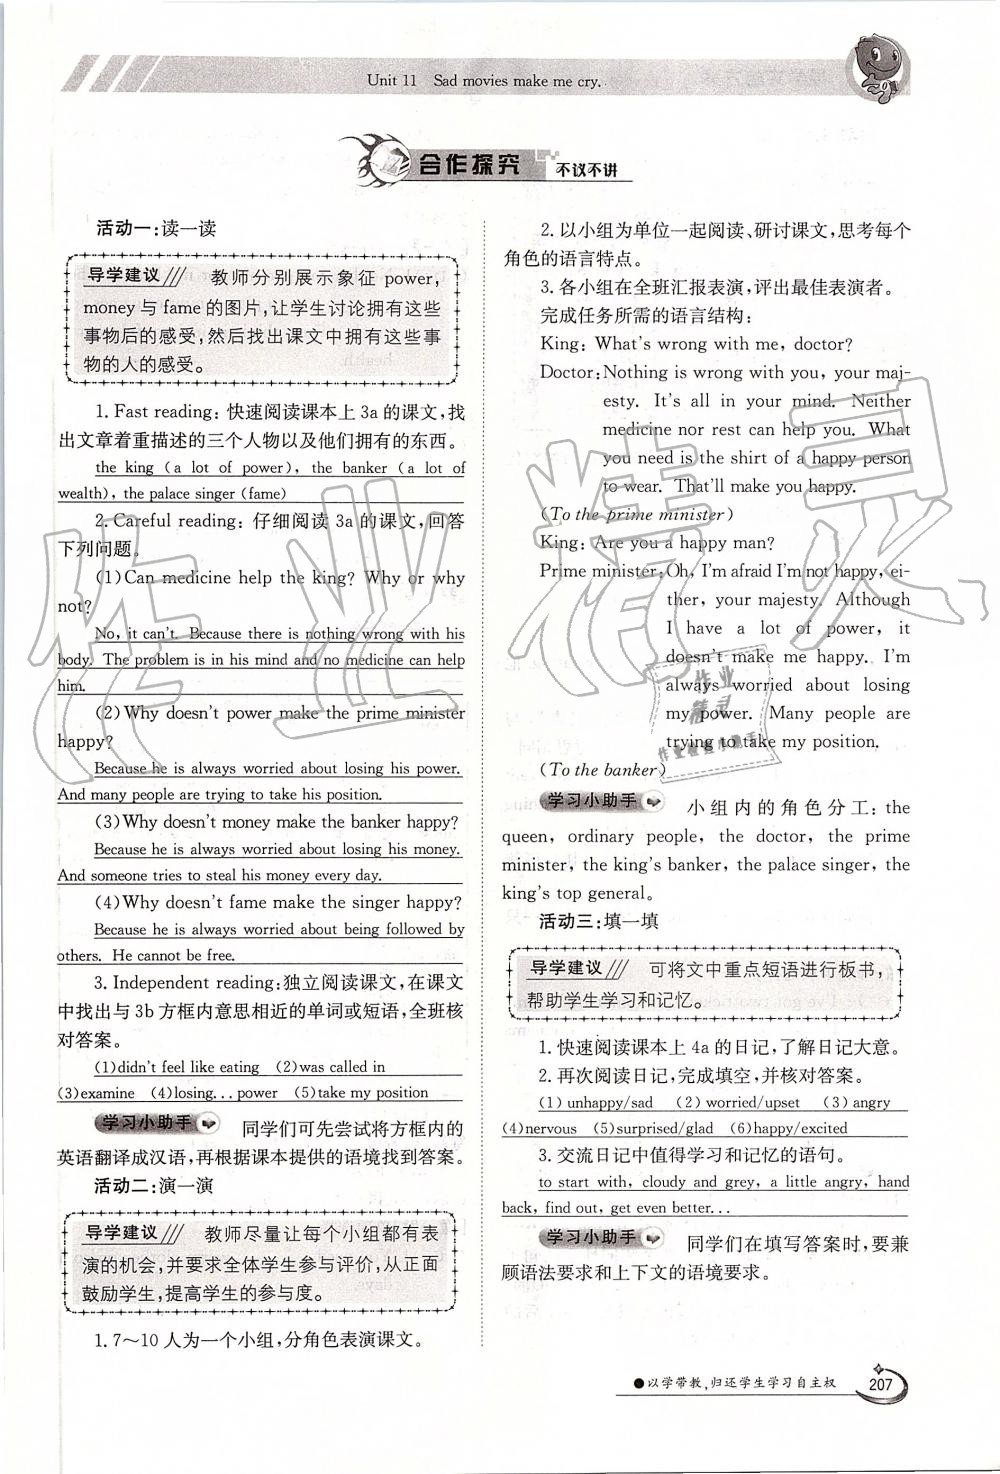 Unit 11 Sad movies make me cry.
合作探究 不议不讲
活动一:读一读
导学建议 教师分别展示象征 power,
money 与 fame 的图片,让学生讨论拥有这些
事物后的感受,然后找出课文中拥有这些事
物的人的感受。
1. Fast reading: 快速阅读课本上 3a 的课文,找
出文章着重描述的三个人物以及他们拥有的东西。
the king (a lot of power), the banker (a lot of
wealth), the palace singer (fame)
2. Careful reading: 仔细阅读 3a 的课文,回答
下列问题。
(1)Can medicine help the king? Why or why
not?
No, it can't. Because there is nothing wrong with his
body. The problem is in his mind and no medicine can help
him.
(2)Why doesn't power make the prime minister
happy?
Because he is always worried about losing his power.
And many people are trying to take his position.
(3)Why doesn't money make the banker happy?
Because he is always worried about losing his money.
And someone tries to steal his money every day.
(4)Why doesn't fame make the singer happy?
Because he is always worried about being followed by
others. He cannot be free.
3. Independent reading:独立阅读课文,在课文
中找出与 3b 方框内意思相近的单词或短语,全班核
对答案。
(1)didn't feel like eating (2)was called in
(3)examine (4)losing...power (5)take my position
学习小助手 同学们可先尝试将方框内的
英语翻译成汉语,再根据课本提供的语境找到答案。
活动二:演一演
导学建议 教师尽量让每个小组都有表
演的机会,并要求全体学生参与评价,从正面
鼓励学生,提高学生的参与度。
1. 7~10 人为一个小组,分角色表演课文。
2. 以小组为单位一起阅读、研讨课文,思考每个
角色的语言特点。
3. 各小组在全班汇报表演,评出最佳表演者。
完成任务所需的语言结构:
King: What's wrong with me, doctor?
Doctor: Nothing is wrong with you, your maj-
esty. It's all in your mind. Neither
medicine nor rest can help you. What
you need is the shirt of a happy person
to wear. That'll make you happy.
(To the prime minister)
King: Are you a happy man?
Prime minister: Oh, I'm afraid I'm not happy, ei-
ther, your majesty. Although
I have a lot of power, it
doesn't make me happy. I'm
always worried about losing
my power. Many people are
trying to take my position.
(To the banker)
学习小助手 小组内的角色分工: the
queen, ordinary people, the doctor, the prime
minister, the king's banker, the palace singer, the
king's top general。
活动三:填一填
导学建议 可将文中重点短语进行板书,
帮助学生学习和记忆。
1. 快速阅读课本上 4a 的日记,了解日记大意。
2. 再次阅读日记,完成填空,并核对答案。
(1) unhappy/sad (2) worried/upset (3) angry
(4)nervous (5)surprised/glad (6)happy/excited
3. 交流日记中值得学习和记忆的语句。
to start with, cloudy and grey, a little angry, hand
back, find out, get even better...
学习小助手 同学们在填写答案时,要兼
顾语法要求和上下文的语境要求。
●以学带教,归还学生学习自主权 207
作业精灵
作业
精灵
作业检查小助手